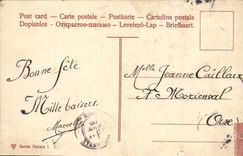 Post card - Carte postale - Postkarte - Cartolina postale
Dopisnice - Открытое письмо - Levelező-Lap - Briefkaart.
Bonne fête
Mille baisers
Marcelle
Melle Jeanne Caillaux
À Morienval
Oise
Serien Nature I.